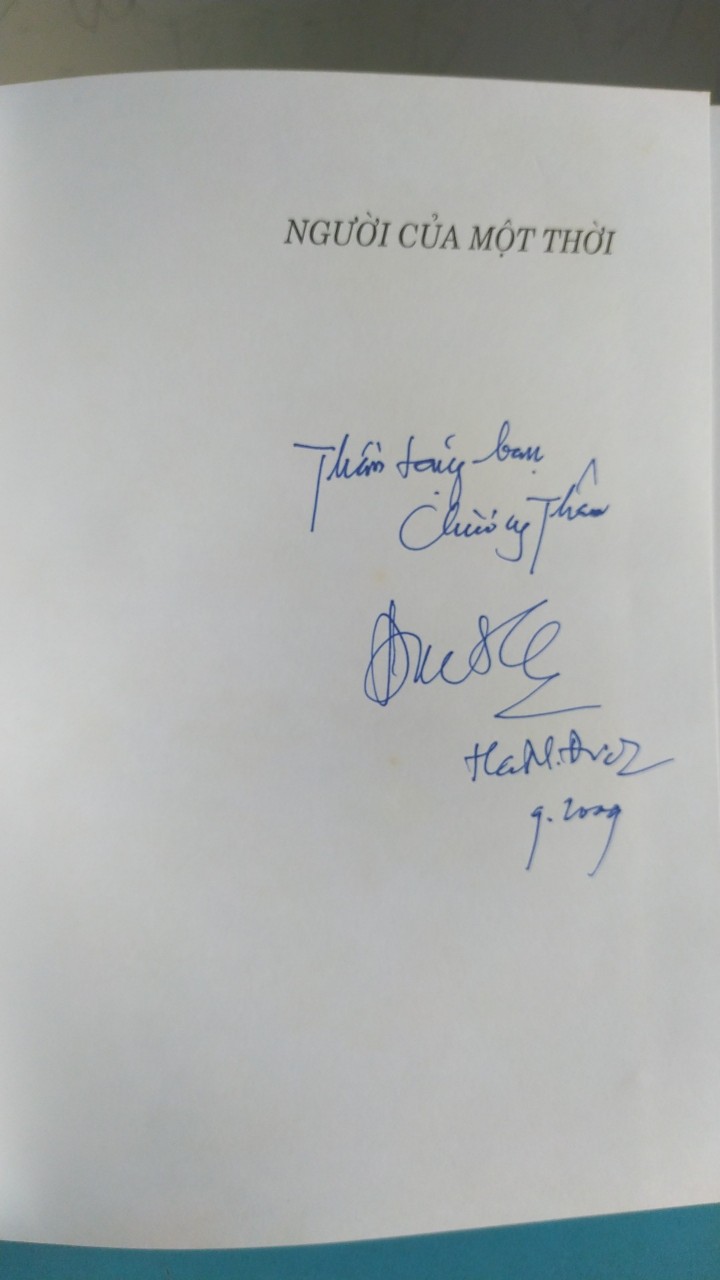 NGƯỜI CỦA MỘT THỜI
Thân tặng bạn
Chương Thâu
Hà M. Đức
9. 2009